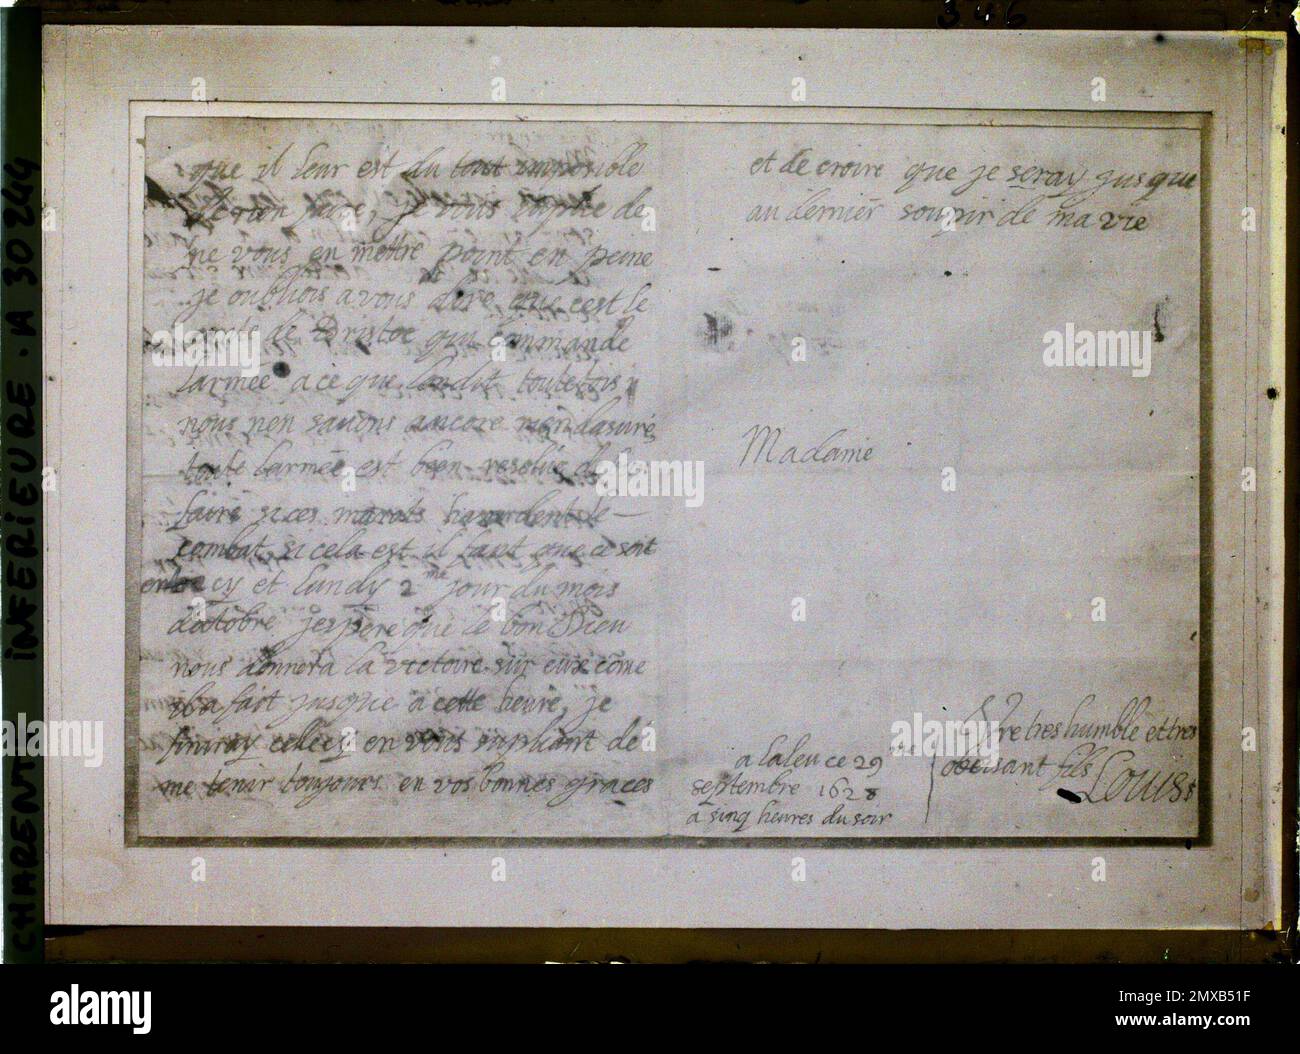 346
CHARENTE INFERIEURE . A 30 244
que il leur est du tout impossible
de rien faire, je vous suplie de
ne vous en mettre point en peine
je oubliois a vous dire que cest le
conte de Bristoc qui commande
larmee a ce que lon dit toutefois
nous nen savons ancore rien dasuré
toute larmée est bien resolue de
faire si ces marots hazardent le
combat, si cela est il faut que ce soit
et lundy 2me jour du mois
doctobre jespere que le bon Dieu
nous donnera la victoire sur eux come
il a fait jusque a cette heure, je
finiray celecy en vous supliant de
me tenir toujours en vos bonnes graces
et de croire que je seray jusque
au dernier soupir de ma vie
Madame
Vre tres humble et tres
obeisant fils
Louis
a laleu ce 29
septembre 1628
a sinq heures du soir
alamy
alamy
Image ID: 2MXB51F
www.alamy.com